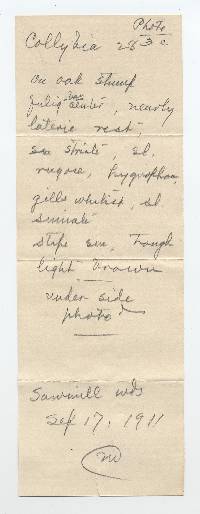 Photo
Collybia 283 c.
on oak stump
center, nearly
laterie rest,
striate, sl.
rugose, hygrophan,
gills whitish, sl.
sinuate
stipe sm, tough
light brown
under side
photo'd
Sawmill wds
Sep 17, 1911
M